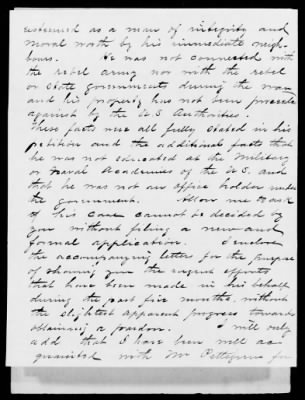 esteemed as a man of integrity and
moral worth by his immediate neigh-
bours. He was not connected with
the rebel army nor with the rebel
or State governments during the war
and his property has not been proceeded
against by the U.S Authorities.
These facts were all fully stated in his
petition and the additional facts that
he was not educated at the Military
or Naval Academies of the U.S. and
that he was not an office holder under
the government. Allow me to ask
if his case cannot be decided by
you without filing a new and
formal application. I enclose
the accompanying letter for the purpose
of showing you the urgent efforts
that have been made in his behalf
during the past five months, without
the slightest apparent progress towards
obtaining a pardon. I will only
add that I have been well ac-
quainted with Mr Pettigrew for